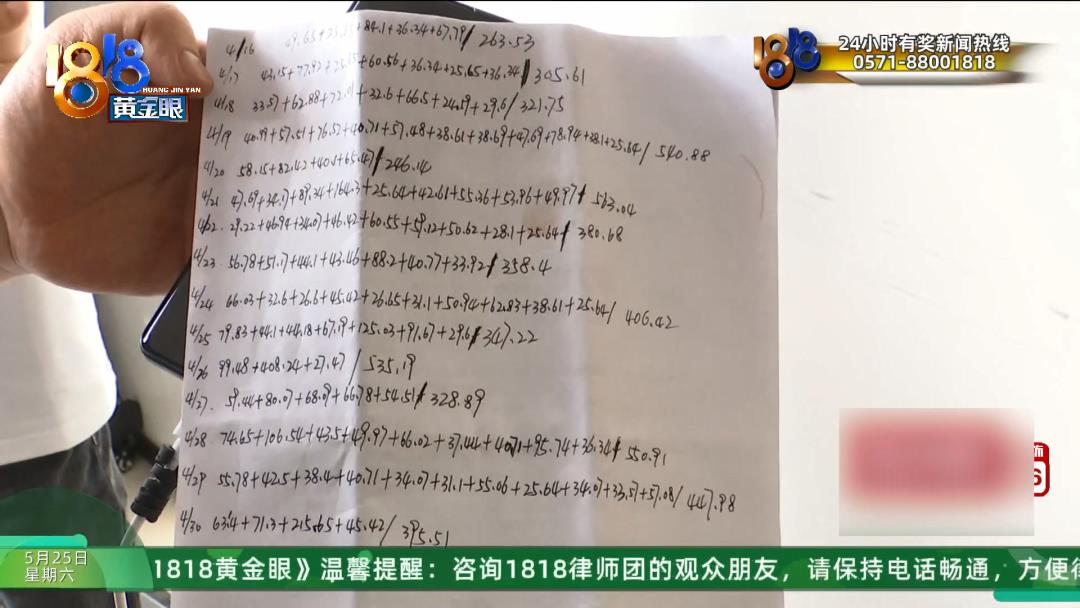 4/16 49.65+25.65+84.1+36.34+67.79/263.53
4/17 43.15+77.92+25.65+60.56+36.34+25.65+36.34/305.61
4/18 33.57+62.88+72.01+32.6+66.5+24.59+29.6/321.75
4/19 40.99+57.51+76.57+40.71+57.48+38.61+38.69+47.69+78.94+38.1+25.64/540.88
4/20 58.15+82.42+40.1+65.47/246.14
4/21 47.69+34.07+89.34+164.3+25.64+42.61+55.36+53.96+49.97/563.04
4/22. 29.22+46.94+34.07+46.42+60.55+59.12+50.62+28.1+25.64/380.68
4/23. 56.78+51.17+44.1+43.46+88.2+40.77+33.92/358.4
4/24 66.03+32.6+26.6+45.42+26.65+31.1+50.94+62.83+38.61+25.64/406.42
4/25 79.83+44.1+44.18+67.19+125.03+91.67+29.6/347.22
4/26 99.48+408.24+27.47/535.19
4/27. 59.44+80.07+68.09+66.78+54.51/328.89
4/28 74.65+106.54+43.5+49.97+66.02+37.44+40.71+95.74+36.34/550.91
4/29 55.78+42.5+38.4+40.71+34.07+31.1+55.06+25.64+34.07+33.57+57.08/447.98
4/30 63.4+71.3+215.65+45.42/395.51
1818
HUANG JIN YAN
黄金眼
1818
24小时有奖新闻热线
0571-88001818
5月25日
星期六
1818黄金眼》温馨提醒：咨询1818律师团的观众朋友，请保持电话畅通，方便